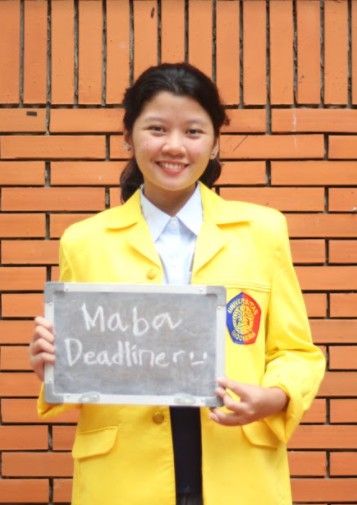 Maba
Deadliner :)
UNIVERSITAS
INDONESIA